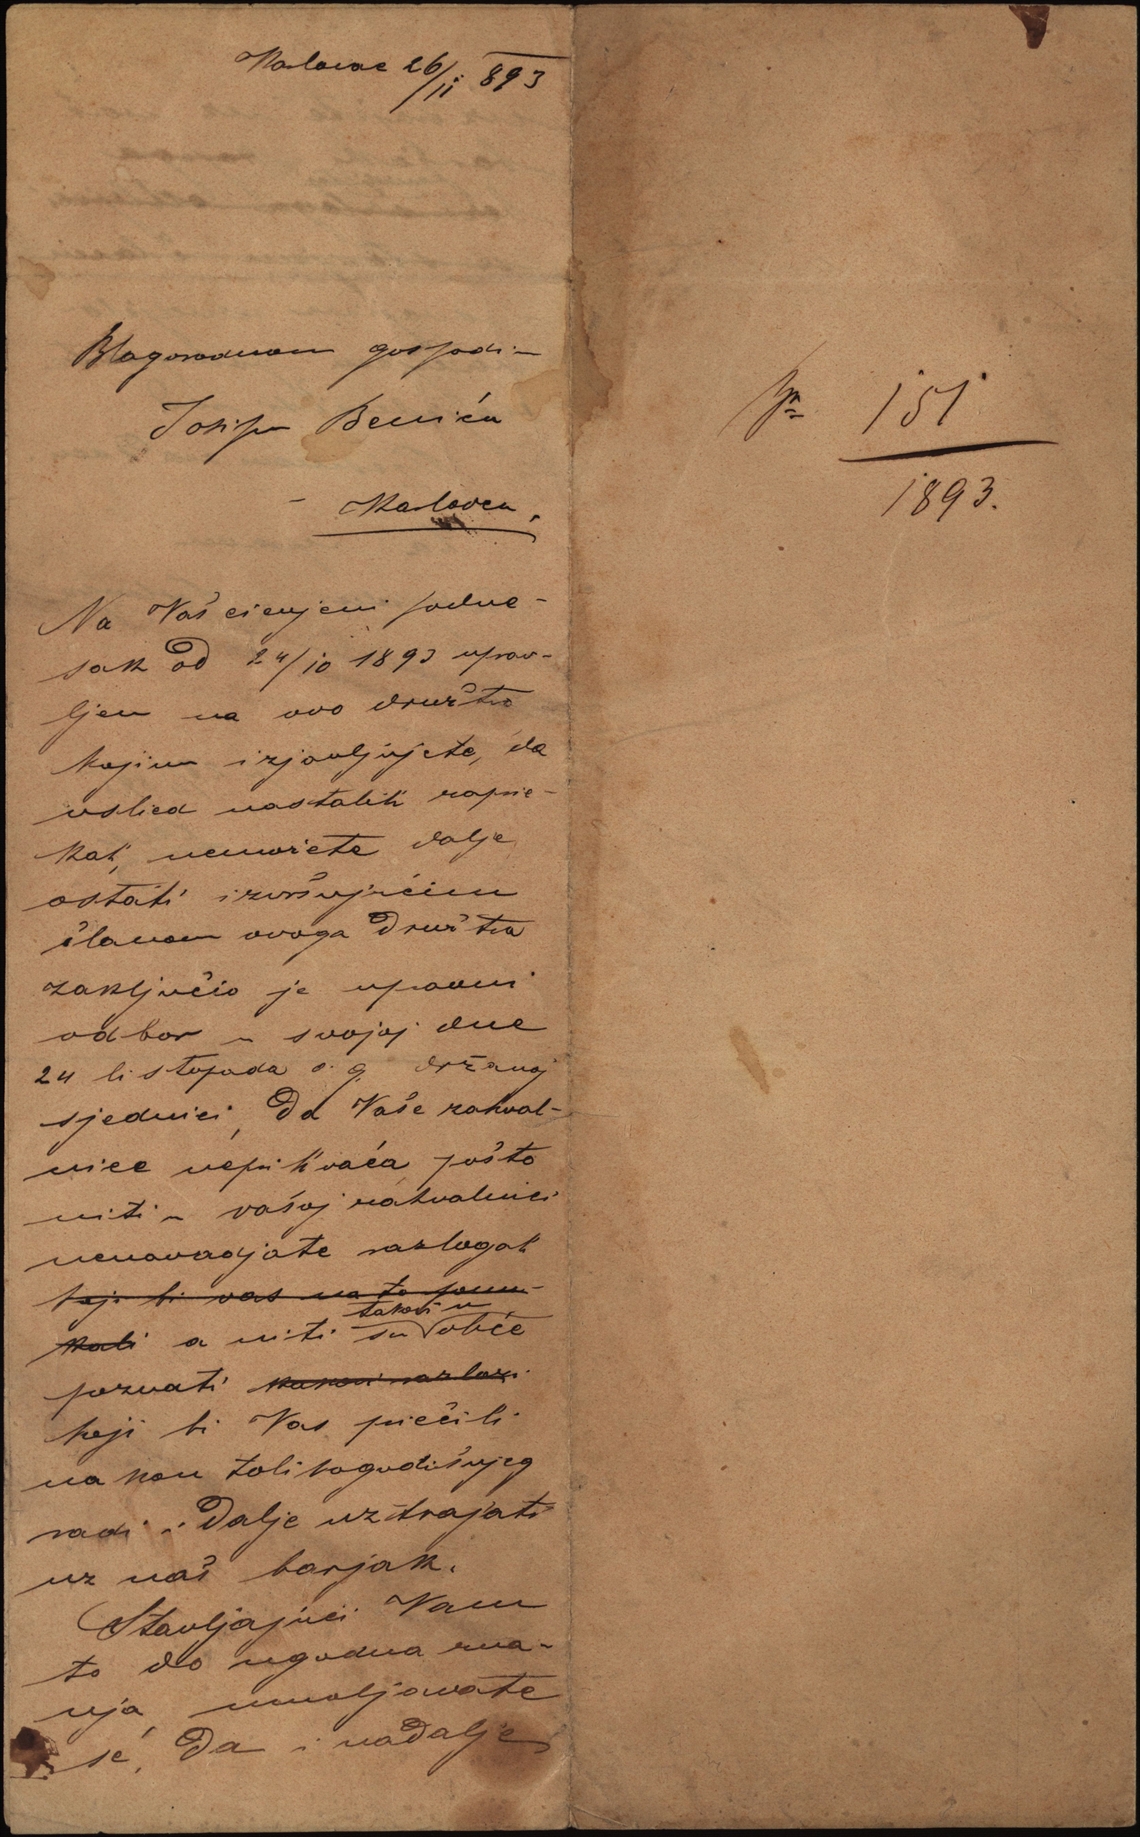 Karlovac 26/11 893
Blagorodnom gospodi-
Josipu Beniću
- Karlovcu.
Na Vaš cienjeni podne-
sak od 24/10 1893 uprav-
ljen na ovo družtvo
kojim izjavljujete, da
uslied nastalih zaprie-
kah, nemožete dalje
ostati izvršujućim
članom ovoga družtva
zaključio je upravni
odbor u svojoj dne
24 listopada o. g. držanoj
sjednici, da Vaše zahval-
nice neprihvaća pošto
niti u vašoj zahvalnici
nenavadjate razlogah
koji bi vas na to ponu-
kali a niti su takovi u obće
poznati kakovi razlozi
koji bi Vas priečili
na kon tolikogodišnjeg
rada i dalje uztrajati
uz naš barjak.
Stavljajući Vam
to do ugodna zna-
nja, umoljavate
se, da i nadalje
Br 151
1893.